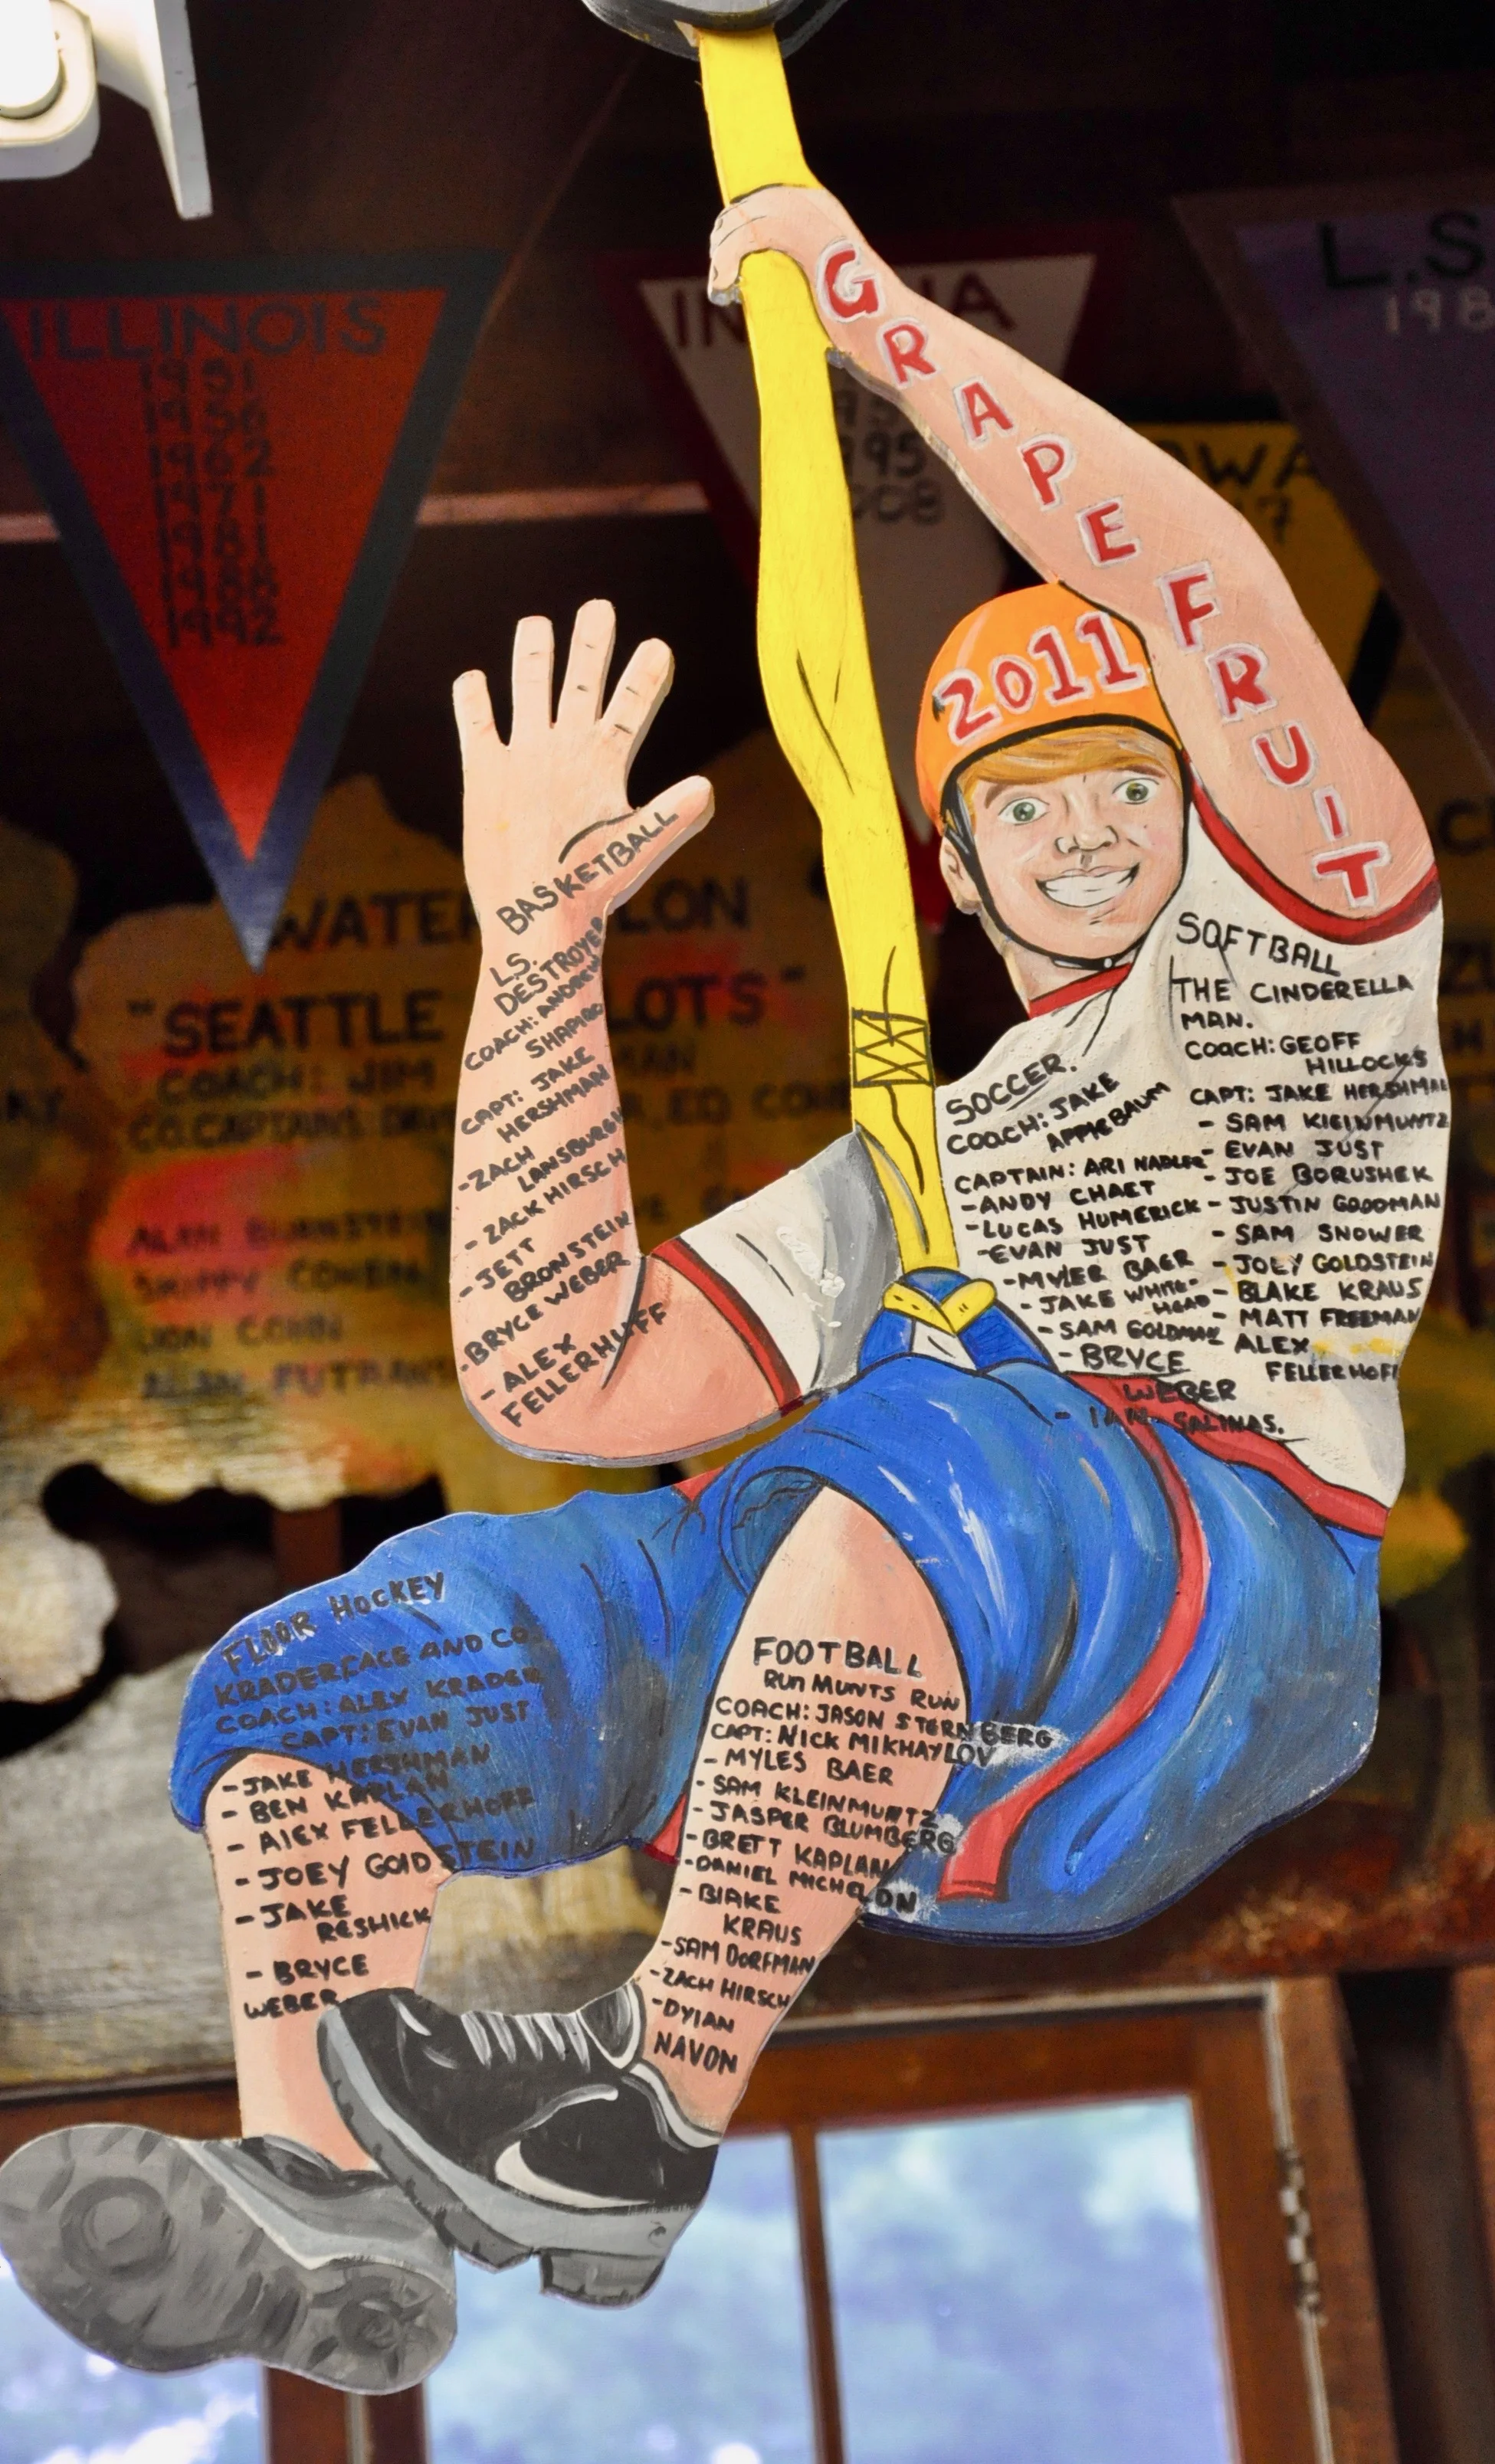 GRAPEFRUIT
2011
ILLINOIS
1951
1956
1962
1971
1981
1988
1992
L.S
198
995
SEATTLE
COACH: JIM
BASKETBALL
L.S.
DESTROYER
COACH: ANDREW
SHAPIRO
CAPT: JAKE
HERSHMAN
-ZACH
LANSBURGH
- ZACK HIRSCH
-JETT
BRONSTEIN
-BRYCE WEBER
- ALEX
FELLERHUFF
SOFTBALL
THE CINDERELLA
MAN.
COACH: GEOFF
HILLOCKS
CAPT: JAKE HERSHMAN
- SAM KLEINMUNTZ
- EVAN JUST
- JOE BORUSHEK
- JUSTIN GOODMAN
- SAM SNOWER
- JOEY GOLDSTEIN
- BLAKE KRAUS
- MATT FREEMAN
- ALEX
FELLERHOFF
SOCCER.
COACH: JAKE
APPLEBAUM
CAPTAIN: ARI NADLER
-ANDY CHAET
-LUCAS HUMERICK
-EVAN JUST
-MYLER BAER
- JAKE WHITE-
HEAD
- SAM GOLDMAN
- BRYCE
WEBER
- IAN SALINAS.
FLOOR HOCKEY
KRADERFACE AND CO.
COACH: ALEX KRADER
CAPT: EVAN JUST
-JAKE HERSHMAN
- BEN KAPLAN
- ALEX FELLERHOFF
- JOEY GOLDSTEIN
-JAKE
RESHICK
- BRYCE
WEBER
FOOTBALL
RUN MUNTS RUN
COACH: JASON STERNBERG
CAPT: NICK MIKHAYLOV
- MYLES BAER
- SAM KLEINMUNTZ
- JASPER BLUMBERG
-BRETT KAPLAN
-DANIEL MICHELON
-BLAKE
KRAUS
-SAM DORFMAN
-ZACH HIRSCH
-DYLAN
NAVON